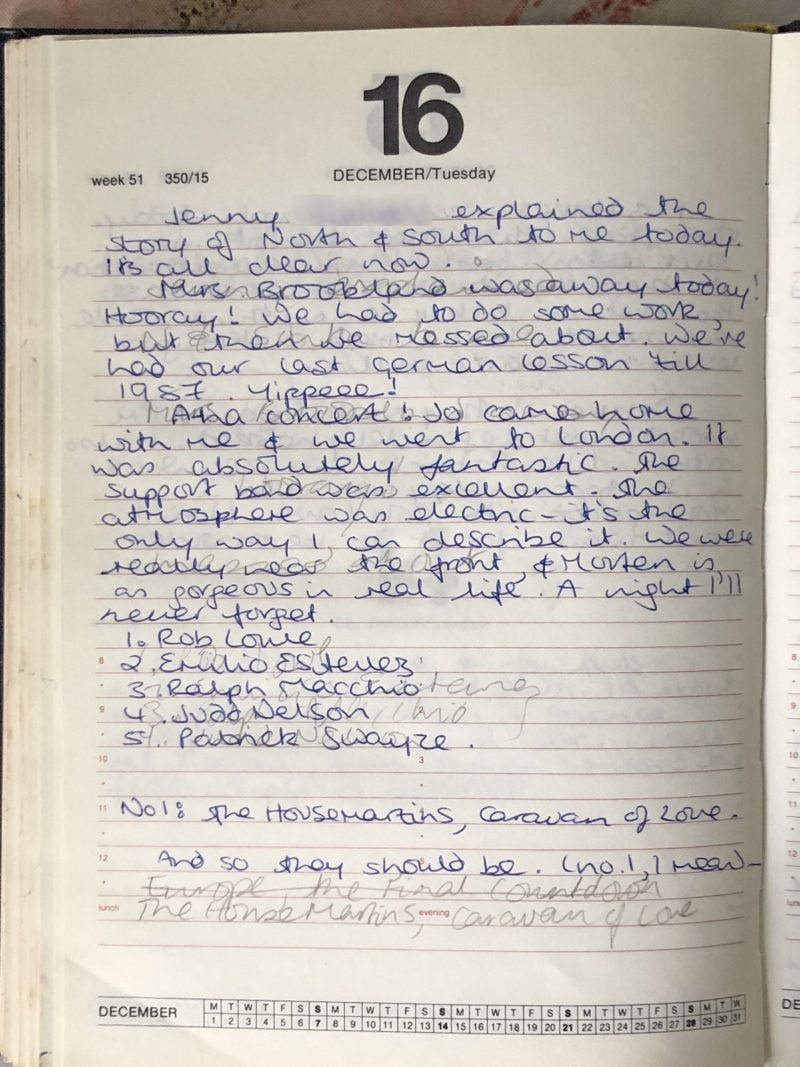 16
week 51 350/15
DECEMBER/Tuesday
Jenny explained the
story of North & South to me today.
It's all clear now.
Mrs Brooksland was away today!
Hooray! We had to do some work,
but then we messed about. We've
had our last German lesson till
1987. Yippeee!
A-ha concert! Jo came home
with me & we went to London. It
was absolutely fantastic. The
support band was excellent. The
atmosphere was electric - it's the
only way I can describe it. We were
really near the front, & Morten is
as gorgeous in real life. A night I'll
never forget.
1. Rob Lowe
8
2. Emilio Estevez
3. Ralph Macchio
9
4. Judd Nelson
5. Patrick Swayze.
10 3
11 No1: The Housemartins, Caravan of Love.
12 And so they should be. (no.1, I mean-
Europe, the Final Countdown
lunch The HouseMartins, evening Caravan of Love
DECEMBER M T W T F S S M T W T F S S M T W T F S S M T W T F S S M T W
1 2 3 4 5 6 7 8 9 10 11 12 13 14 15 16 17 18 19 20 21 22 23 24 25 26 27 28 29 30 31
8
9
10
11
12
DE